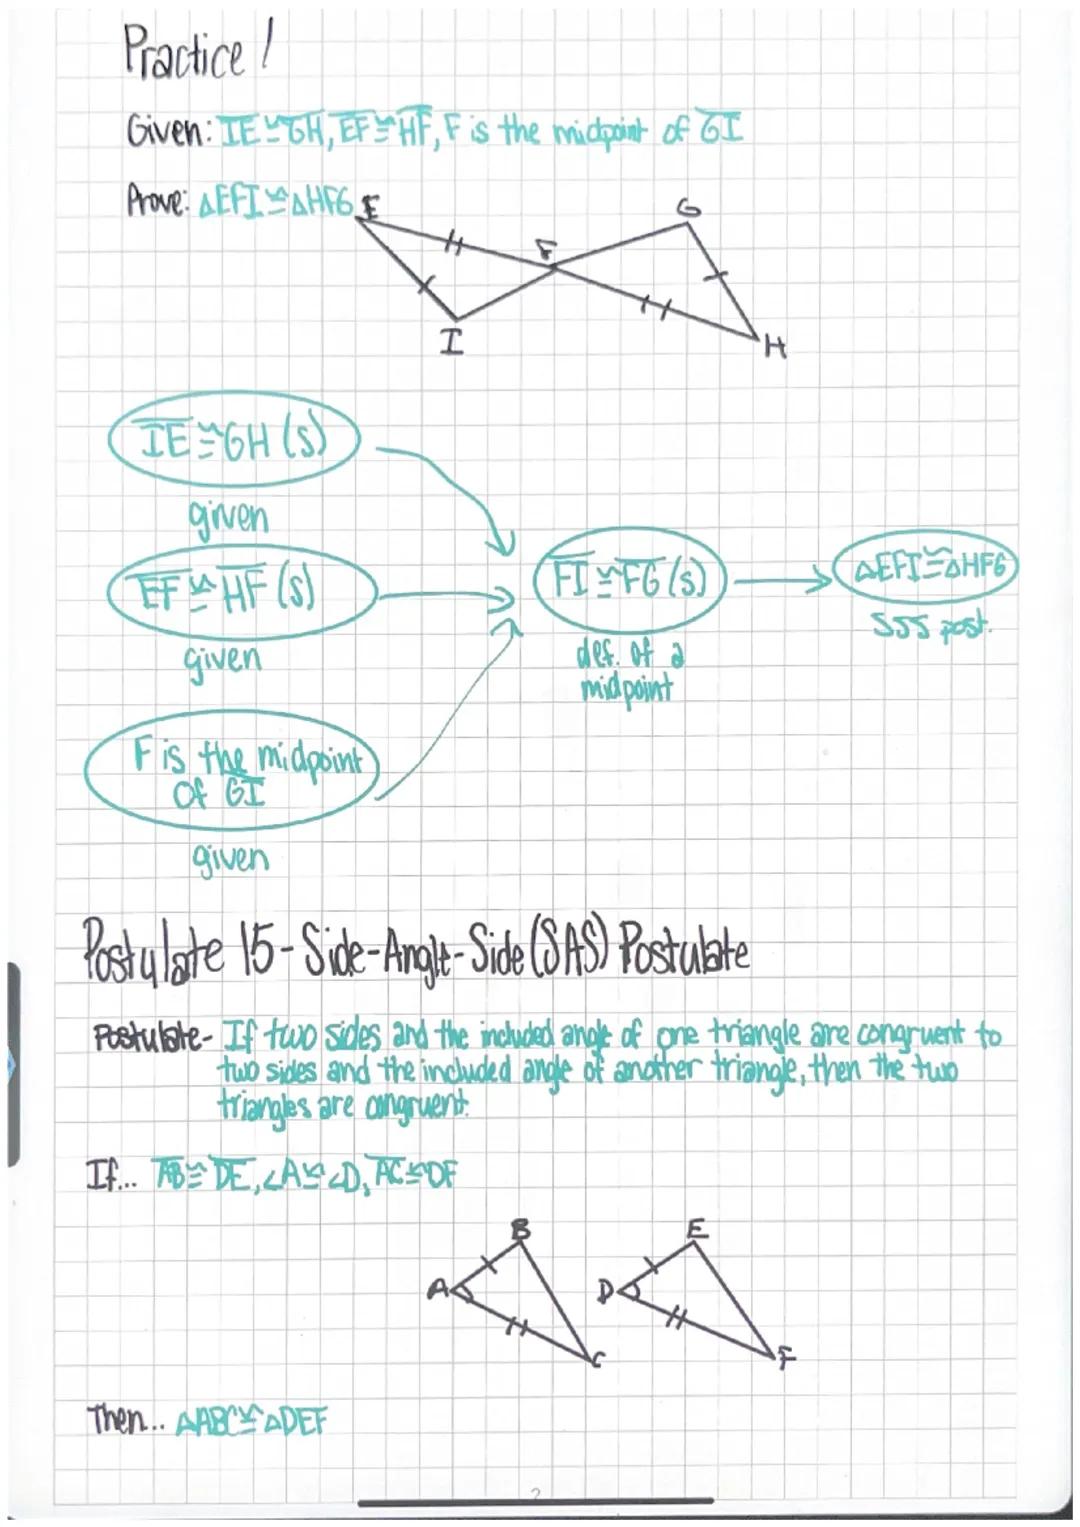 Practice!
Given: IE≅GH, EF≅HF, F is the midpoint of GI
Prove: △EFI≅△HFG
E
G
F
I
H
IE≅GH (s)
given
EF≅HF (s)
given
FI≅FG (s)
def. of a
midpoint
△EFI≅△HFG
SSS post.
F is the midpoint
of GI
given
Postulate 15-Side-Angle-Side (SAS) Postulate
Postulate- If two sides and the included angle of one triangle are congruent to
two sides and the included angle of another triangle, then the two
triangles are congruent.
If... AB≅DE, ∠A≅∠D, AC≅DF
B
E
A
D
C
F
Then... △ABC≅△DEF
2